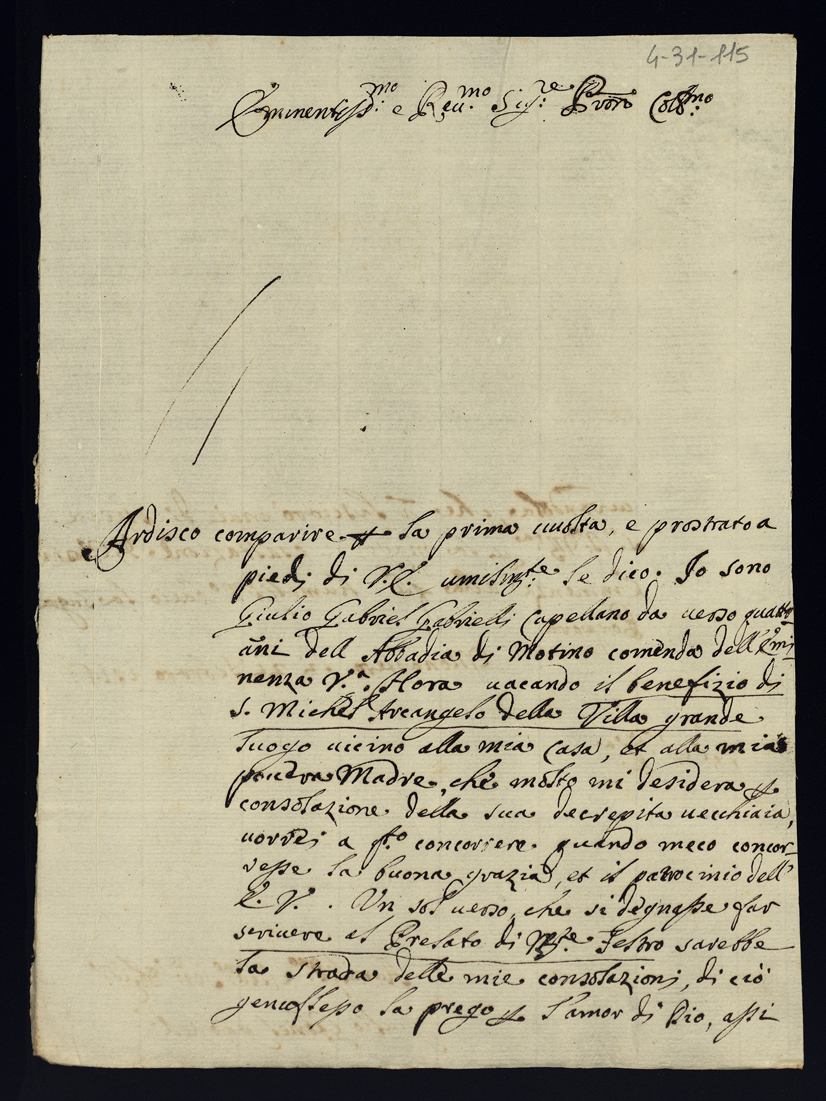 4-31-115
Eminentiss:mo e Reu.mo Sig:re Pron Col:mo
Ardisco comparire p la prima uuolta, e prostrato a
piedi di V.E. umilmte le dico. Io sono
Giulio Gabriel Gabrielli Capellano da uerso quattro
ani dell Abbadia di Motino comenda dell'Emi-
nenza V.a Hora uacando il benefizio di
S. Michel Arcangelo della Villa grande
luogo uicino alla mia Casa, et alla mia
pouera Madre, che molto mi desidera p
consolazione della sua decrepita uecchiaia,
uorrei a qto concorrere quando meco concor-
resse la buona grazia, et il patrocinio dell'
E.V. Un sol uerso, che si degnasse far
scriuere al Prelato di Mte Feltro sarebbe
la strada delle mie consolazioni, di ciò
genuflesso la prego p l'amor di Dio, assi